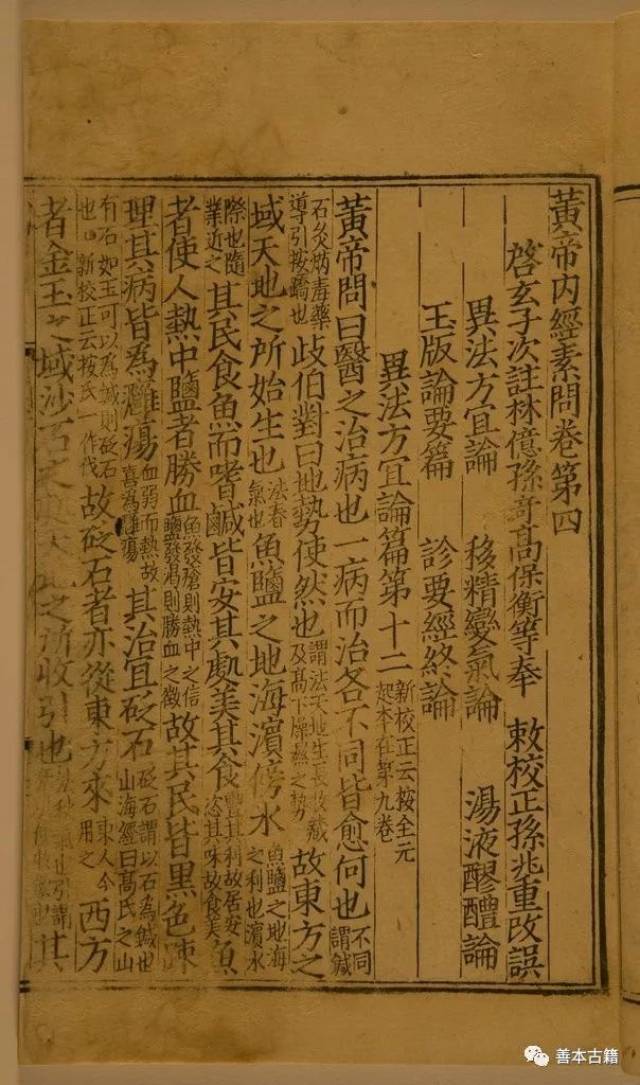 黃帝內經素問卷第四
啓玄子次註林億孫竒高保衡等奉 敕校正孫兆重改誤
異法方宜論 移精變氣論 湯液醪醴論
玉版論要篇 診要經終論
異法方宜論篇第十二 新校正云按全元起本在第九卷
黃帝問曰醫之治病也一病而治各不同皆愈何也 不同謂鍼
石灸焫毒藥導引按蹻也 歧伯對曰地勢使然也 謂法天地生長收藏及髙下燥濕之勢 故東方之
域天地之所始生也 法春氣也 魚鹽之地海濱傍水 魚鹽之地海之利也濱水
際也隨業近之 其民食魚而嗜鹹皆安其處美其食 豐其利故居安恣其味故食美 魚
者使人熱中鹽者勝血 魚發瘡則熱中之信鹽發渴則勝血之徵 故其民皆黑色疎
理其病皆為癰瘍 血弱而熱故喜為癰瘍 其治宜砭石 砭石謂以石為鍼也山海經曰髙氏之山
有石如玉可以為鍼則砭石也 新校正云按氏一作伐 故砭石者亦從東方來 東人今用之 西方
者金玉之域沙石之處天地之所收引也 法秋氣也引謂 其
善本古籍